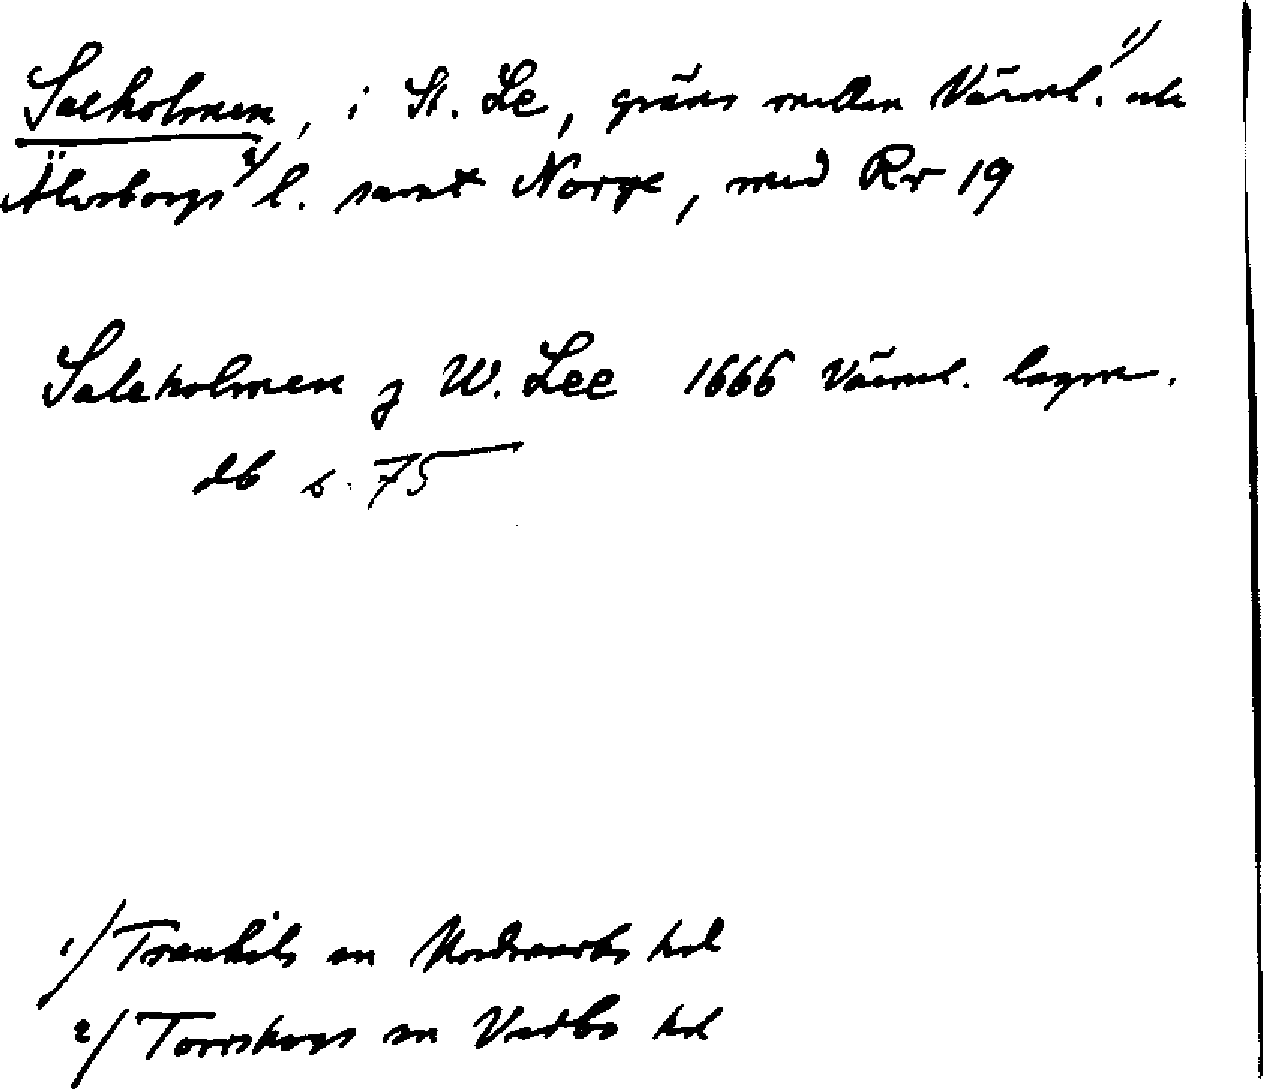 Salholmen, i St. Le, gräns mellan Värml.¹⁾ och
Älvsborgs²⁾ l. samt Norge, med Rr 19
Saleholmen j W. Lee 1666 Värml. lagm.
db s. 75
1) Trankils sn Nordmarks hd
2) Torrskogs sn Vedbo hd